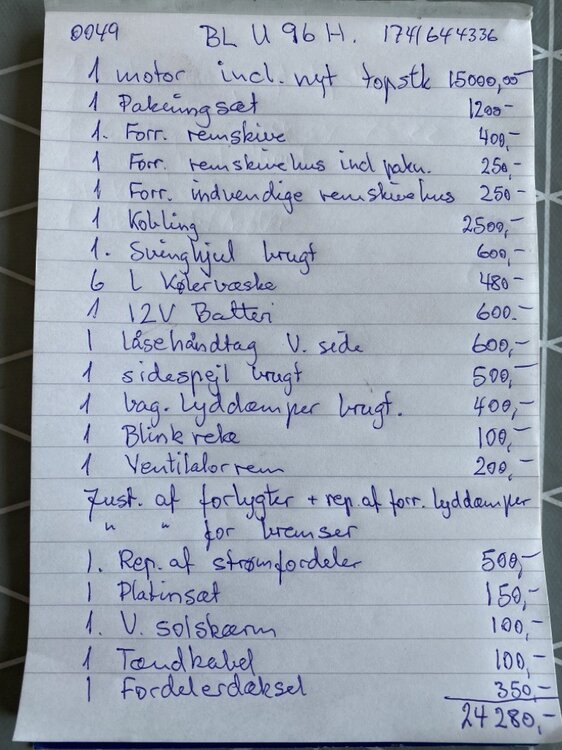 0049 BL U 96 H. 174/644336
1 motor incl. nyt topstk 15000,00
1 Pakningsæt 1200-
1. Forr. remskive 400,-
1 Forr. remskivehus incl pakn. 250,-
1 Forr. indvendige remskivehus 250-
1 Kobling 2500,-
1. Svinghjul brugt 600,-
6 L Kølervæske 480-
1 12V Batteri 600.-
1 låsehåndtag V. side 600,-
1 sidespejl brugt 500,-
1 bag. lyddæmper brugt. 400,-
1 Blink relæ 100,-
1 Ventilatorrem 200,-
Just. af forlygter + rep. af forr. lyddæmper
" " for bremser
1. Rep. af strømfordeler 500,-
1 Platinsæt 150,-
1. V. solskærm 100,-
1 Tændkabel 100,-
1 Fordelerdæksel 350,-
24 280,-